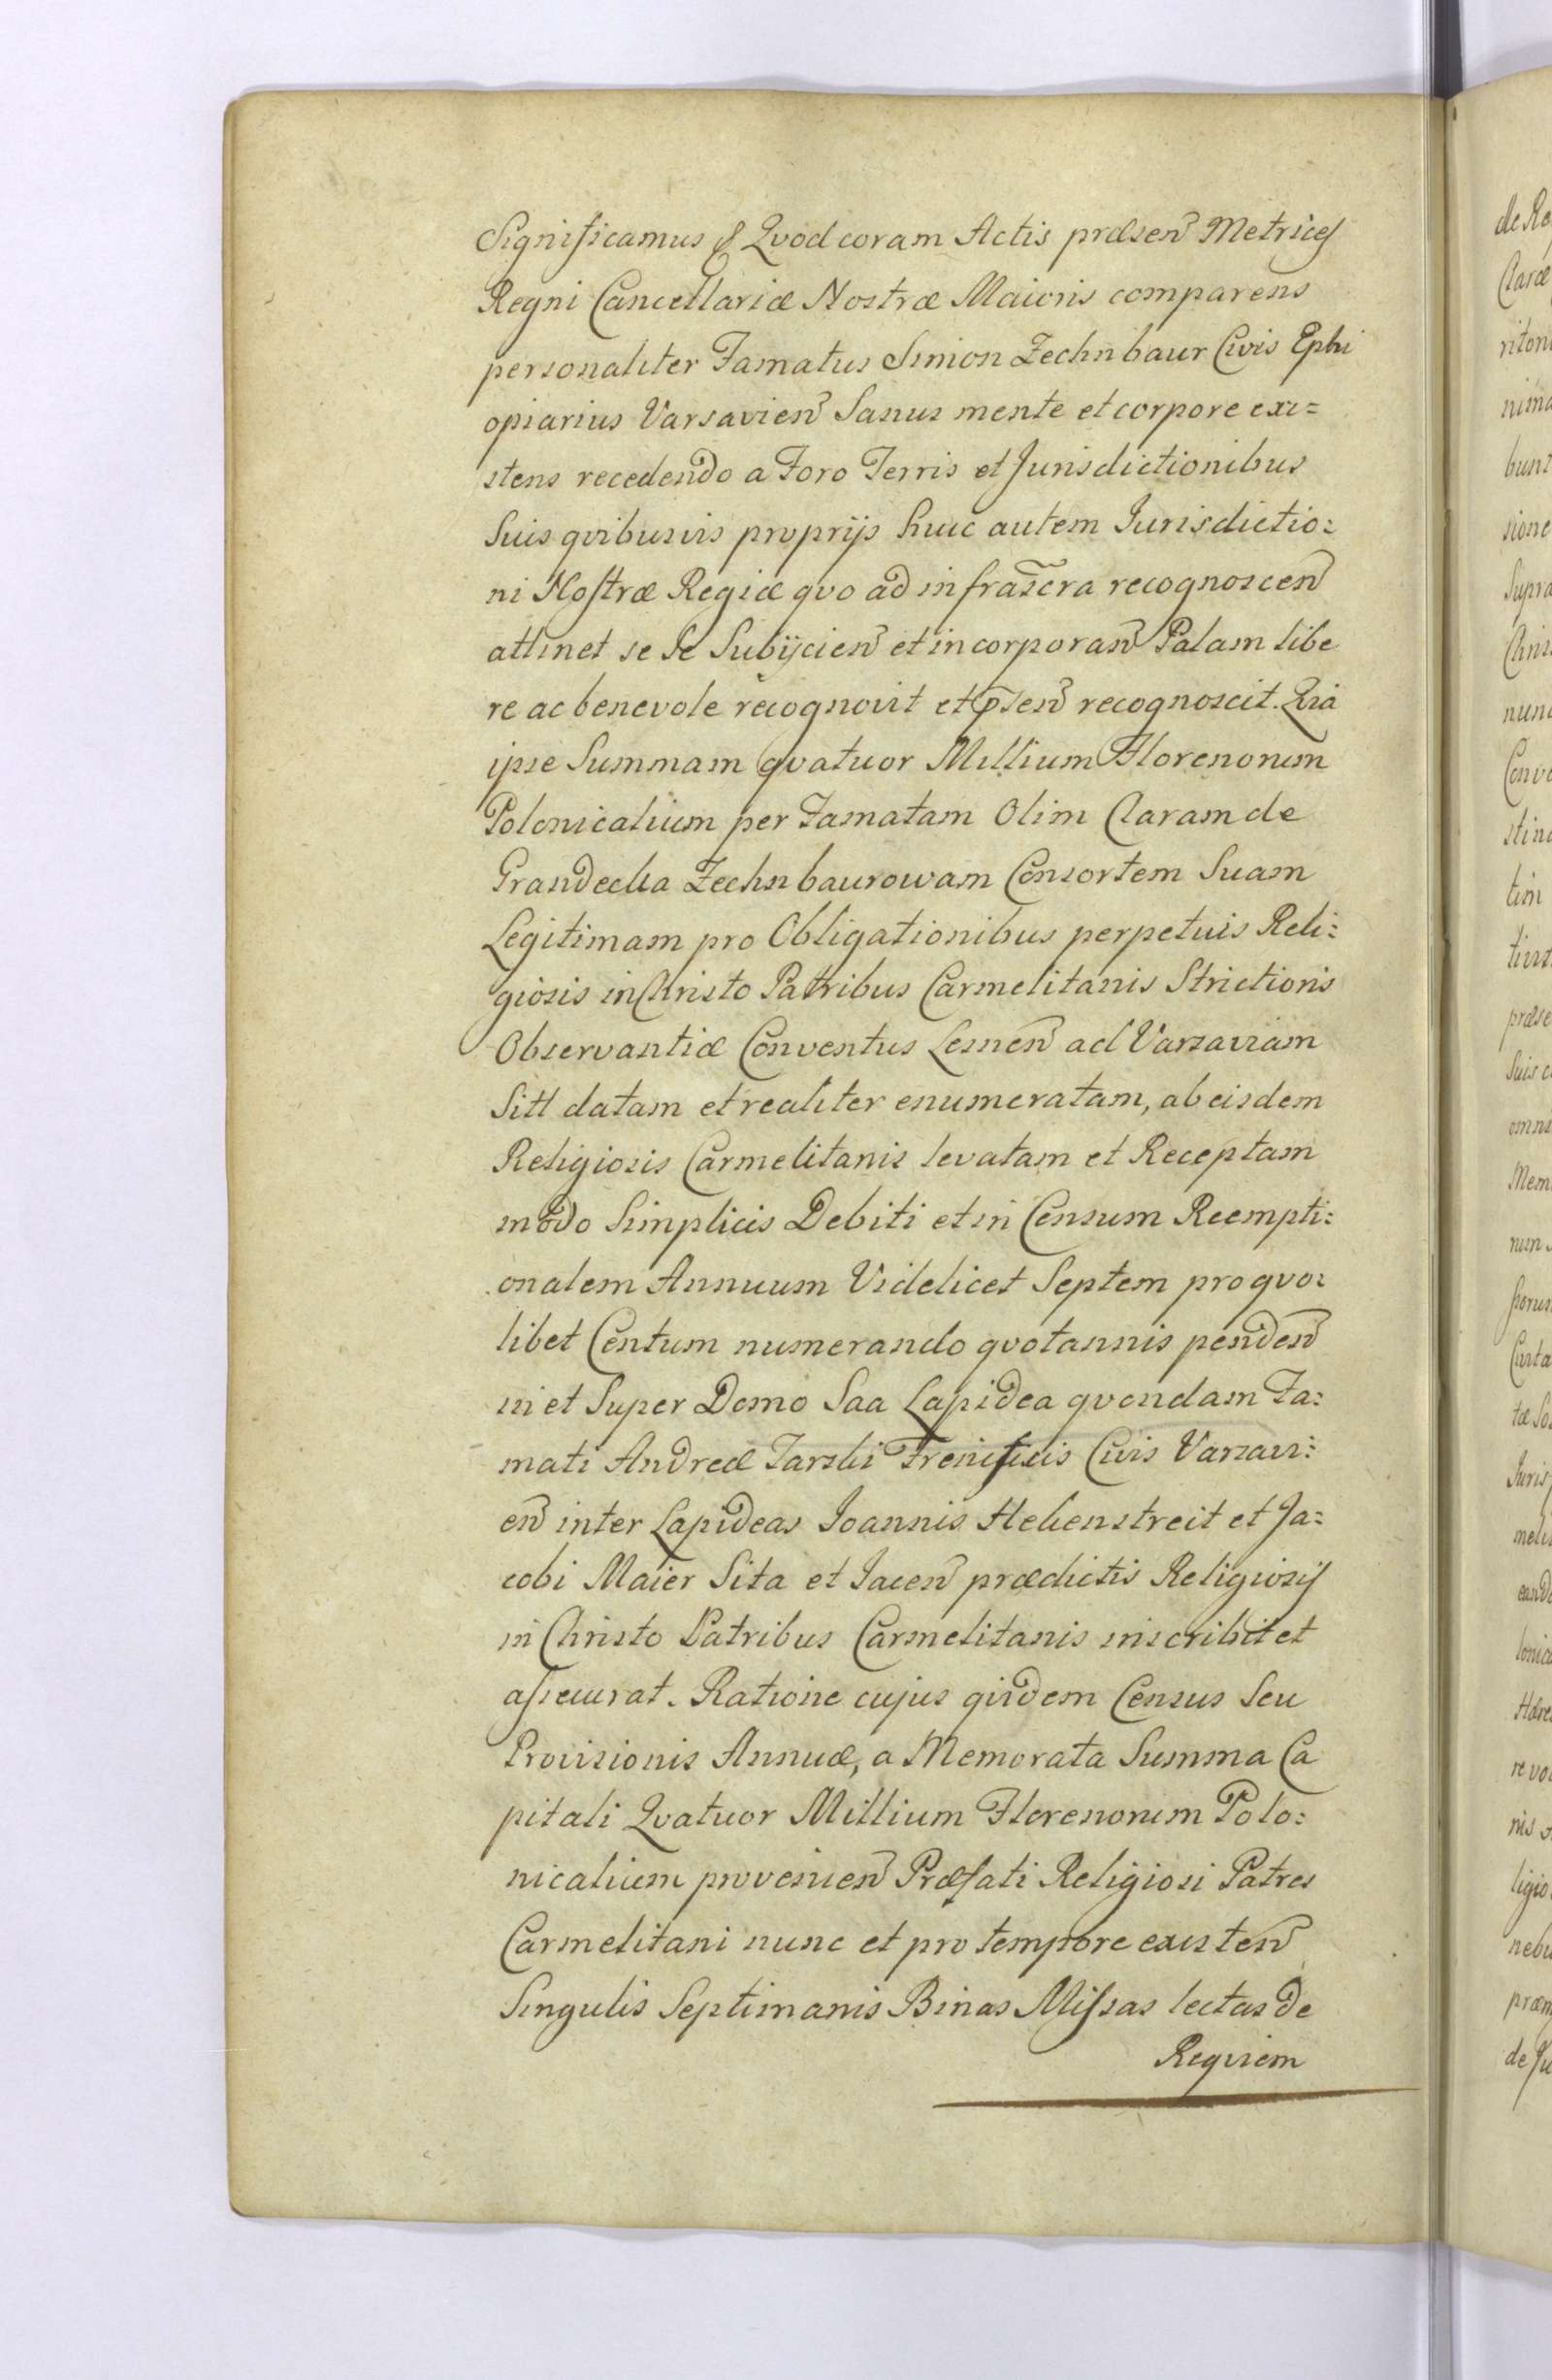 Significamus & Qvod coram Actis præsen Metrices
Regni Cancellariæ Nostræ Maioris comparens
personaliter Famatus Simon Zechnbaur Civis Ephi
opiarius Varsavien Sanus mente et corpore exi=
stens recedendo a Foro Terris et Jurisdictionibus
Suis qvibusvis proprijs huic autem Jurisdictio=
ni Nostræ Regiæ qvo ad infrascra recognoscen
attinet se se Subijcien et incorporan Palam libe
re ac benevole recognovit et psen recognoscit. Qvia
ipse Summam qvatuor Millium Florenorum
Polonicalium per Famatam Olim Claram de
Grandecka Zechnbaurowam Consortem Suam
Legitimam pro Obligationibus perpetuis Reli=
giosis in Christo Patribus Carmelitanis Strictioris
Observantiæ Conventus Lesnen ad Varsaviam
Sitt datam et realiter enumeratam, ab eisdem
Religiosis Carmelitanis levatam et Receptam
modo Simplicis Debiti et in Censum Reempti=
onalem Annuum Videlicet Septem pro qvo=
libet Centum numerando qvotannis penden
in et Super Domo Saa Lapidea qvondam Fa=
mati Andreæ Tarski Frenificis Civis Varsavi=
en inter Lapideas Joannis Hebenstreit et Ja=
cobi Maier Sita et Jacen prædictis Religiosis
in Christo Patribus Carmelitanis inscribit et
assecurat. Ratione cujus qvidem Census Seu
Provisionis Annuæ, a Memorata Summa Ca
pitali Qvatuor Millium Florenorum Polo=
nicalium provenien Præfati Religiosi Patres
Carmelitani nunc et pro tempore existen
Singulis Septimanis Binas Missas lectas de
Reqviem